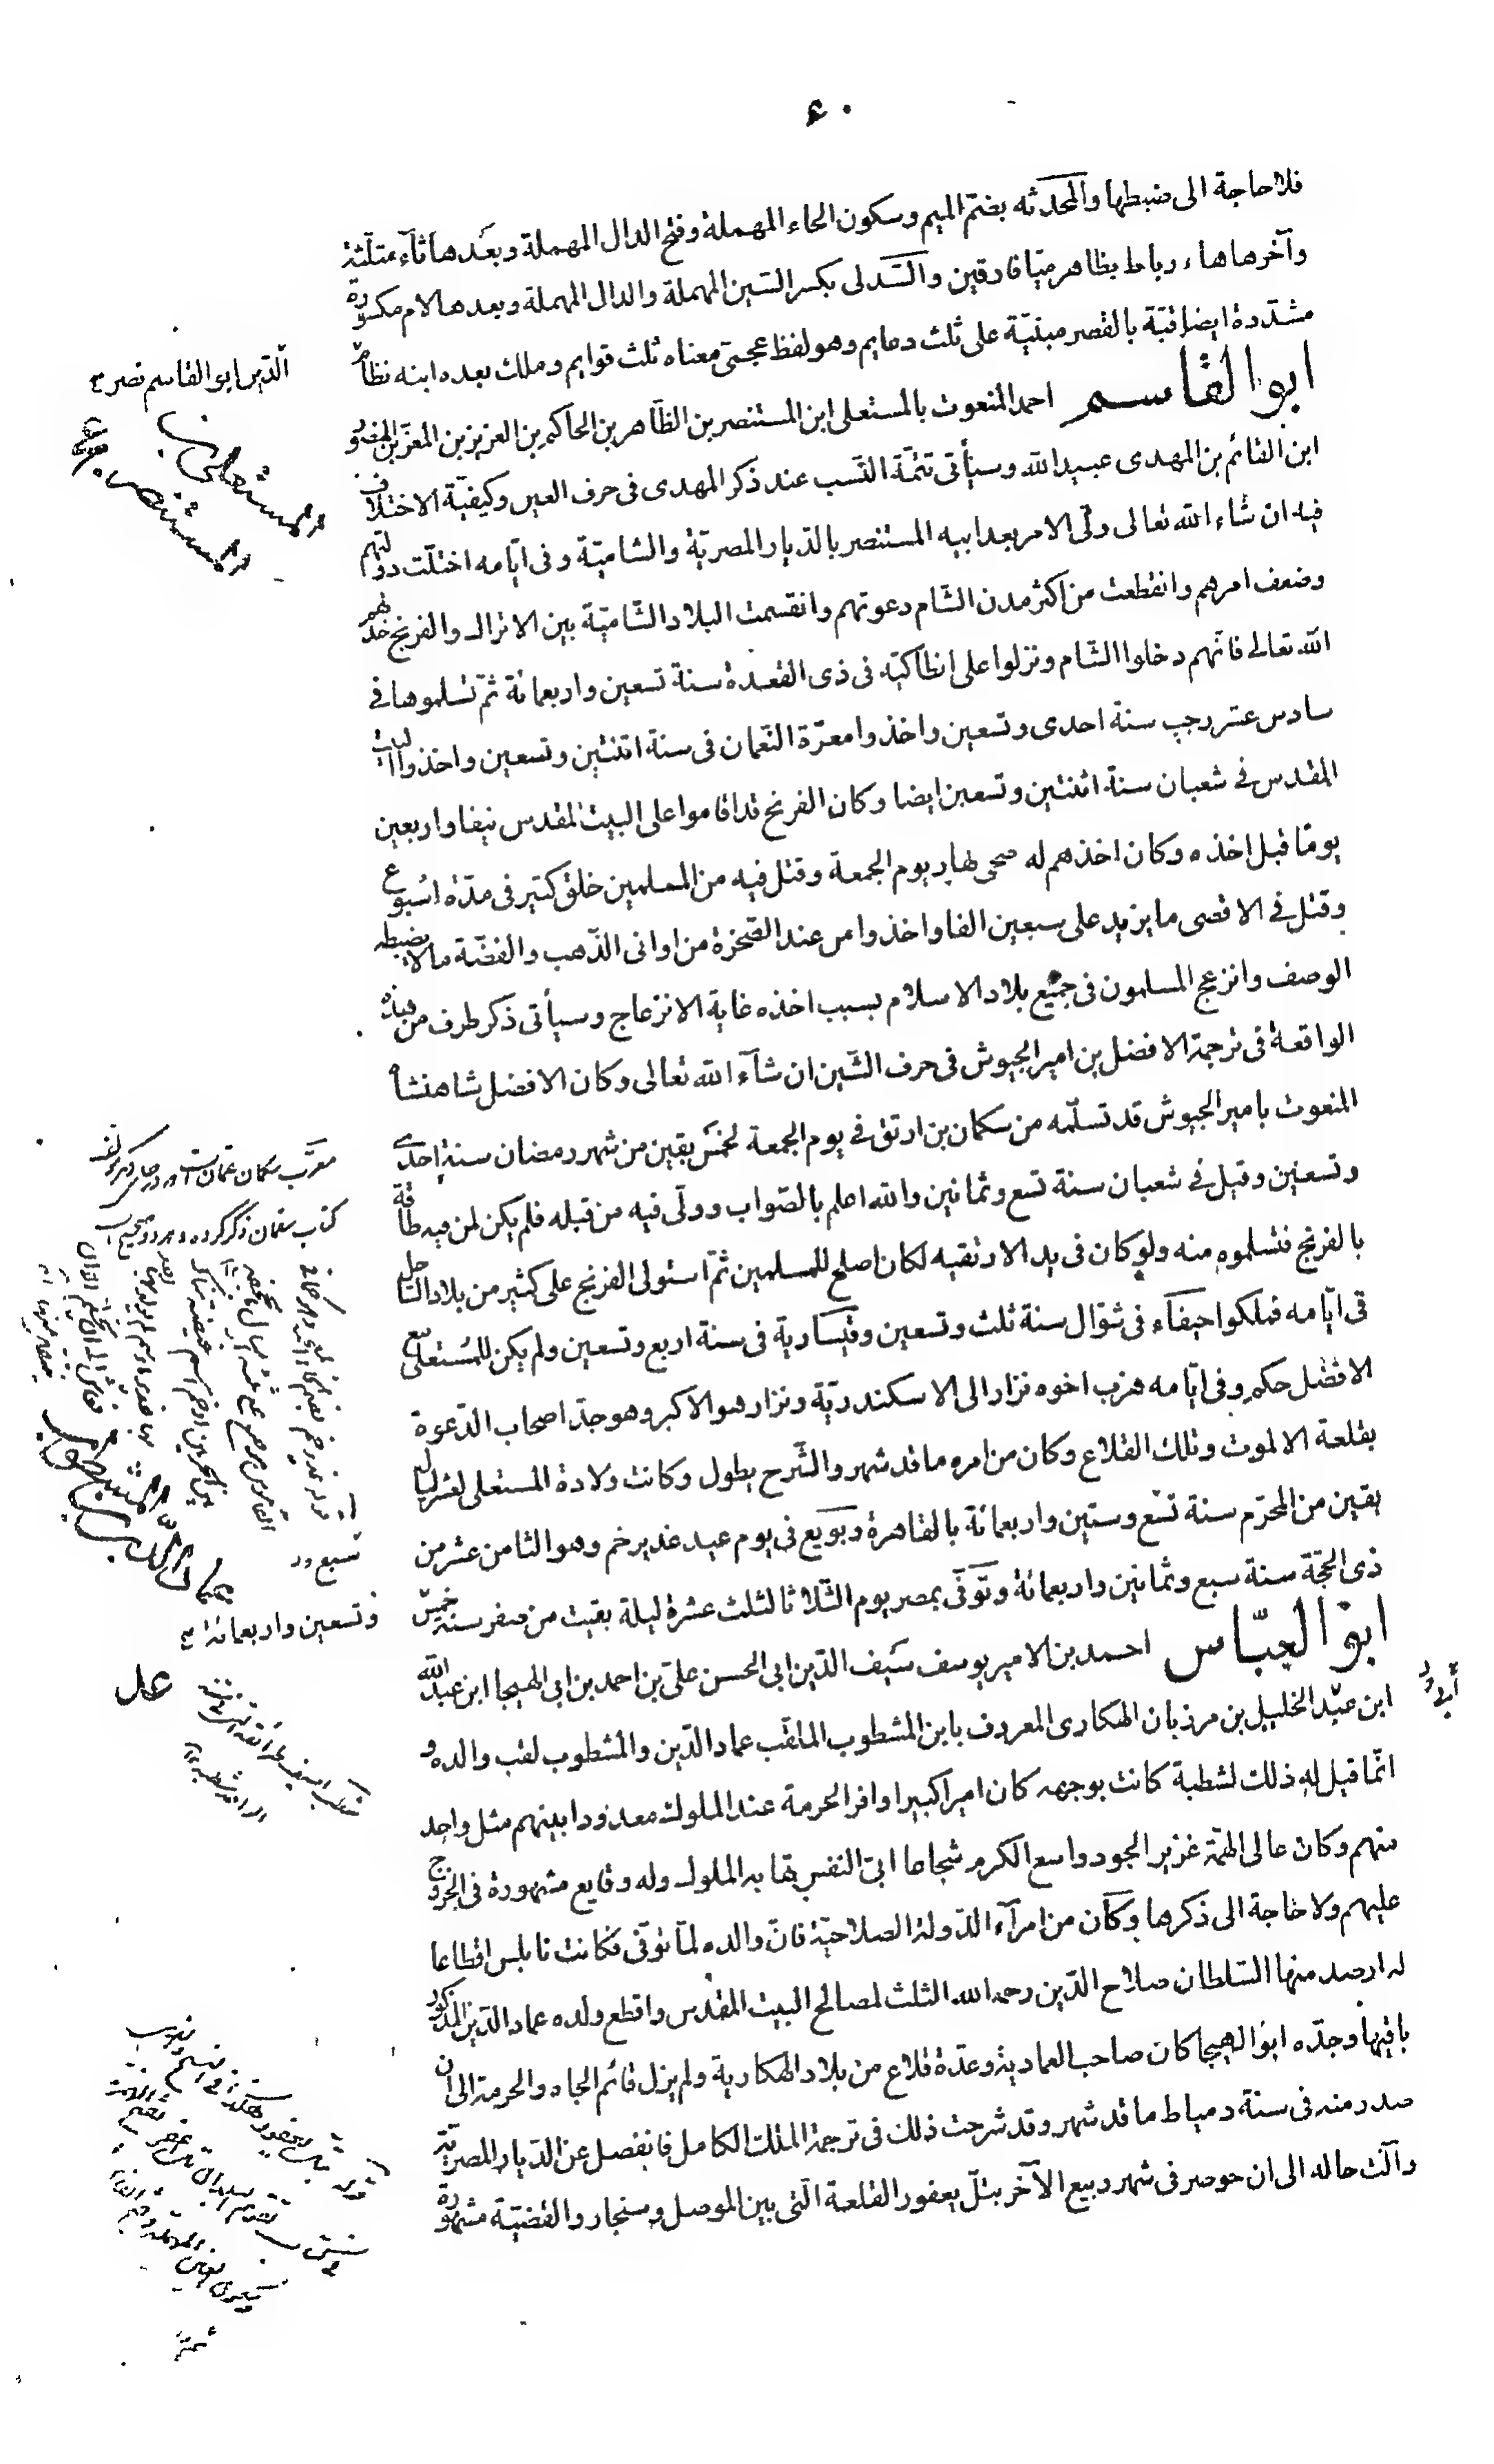 ٤٠
فلا حاجة الى ضبطها والمحدثه بضمّ الميم وسكون الحاء المهملة وفتح الدال المهملة وبعدها ثآء مثلّثة
وآخرها هاء رباط بظاهر ميّافارقين والسّدلى بكسر السّين المهملة والدال المهملة وبعدها لام مكسورة
مشدّدة ايضا قبّة بالقصر مبنيّة على ثلث دعايم وهو لفظ عجمىّ معناه ثلث قوايم وملك بعده ابنه نظام
الدّين ابو القاسم نصر
ابو القاسم احمد المنعوت بالمستعلى ابن المستنصر بن الظّاهر بن الحاكم بن العزيز بن المعزّ بن المنصور
ابن القائم بن المهدى عبيد الله وسيأتى تتمّة النّسب عند ذكر المهدى فى حرف العين وكيفيّة الاختلاف
فيه ان شاء الله تعالى ولّى الامر بعد ابيه المستنصر بالدّيار المصريّة والشاميّة وفى ايّامه اختلّت دولتهم
وضعف امرهم وانقطعت من اكثر مدن الشّام دعوتهم وانقسمت البلاد الشّاميّة بين الاتراك والفرنج خذلهم
الله تعالى فانّهم دخلوا الشّام ونزلوا على انطاكيّة فى ذى القعدة سنة تسعين واربعمائة ثمّ تسلموها فى
سادس عشر رجب سنة احدى وتسعين واخذوا معرّة النّعمان فى سنة اثنتين وتسعين واخذوا البيت
المقدس فى شعبان سنة اثنتين وتسعين ايضا وكان الفرنج قد اقاموا على البيت المقدس نيفا واربعين
يومًا قبل اخذه وكان اخذهم له ضحى نهار يوم الجمعة وقتل فيه من المسلمين خلق كثير فى مدّة اسبوع
وقتل فى الاقصى ما يزيد على سبعين الفا واخذوا من عند الصّخرة من اوانى الذّهب والفضّة ما لا يضبطه
الوصف وانزعج المسلمون فى جميع بلاد الاسلام بسبب اخذه غاية الانزعاج وسيأتى ذكر طرف من هذه
الواقعة فى ترجمة الافضل بن امير الجيوش فى حرف الشّين ان شآء الله تعالى وكان الافضل شاهنشاه
المنعوت بامير الجيوش قد تسلّمه من سكمان بن ارتق فى يوم الجمعة لخمس بقين من شهر رمضان سنة احدى
وتسعين وقيل فى شعبان سنة تسع وثمانين والله اعلم بالصّواب وولّى فيه من قبله فلم يكن لمن فيه طاقة
بالفرنج فتسلموه منه ولو كان فى يد الارتقيه لكان اصلح للمسلمين ثمّ استولى الفرنج على كثير من بلاد السّاحل
فى ايّامه فملكوا حيفآء فى شوّال سنة ثلث وتسعين وقيساريّة فى سنة اربع وتسعين ولم يكن للمستعلى مع
الافضل حكم وفى ايّامه هرب اخوه نزار الى الاسكندريّة ونزار هو الاكبر وهو جدّ اصحاب الدّعوة
بقلعة الالموت وتلك القلاع وكان من امره ما قد شهر والشّرح يطول وكانت ولادة المستعلى لعشر ليال
بقين من المحرّم سنة تسع وستين واربعمائة بالقاهرة وبويع فى يوم عيد غدير خم وهو الثامن عشر من
ذى الحجّة سنة سبع وثمانين واربعمائة وتوفّى بمصر يوم الثّلاثا لثلث عشرة ليلة بقيت من صفر سنة خمس
وتسعين واربعمائة
ابو العبّاس احمد بن الامير يوسف سيف الدّين ابى الحسن علىّ بن احمد بن ابى الهيجا ابن عبد الله
ابن عبد الخليل بن مرزبان الهكارى المعروف بابن المشطوب الملقّب عماد الدّين والمشطوب لقب والده و
انّما قيل له ذلك لشطبة كانت بوجهه كان اميرا كبيرا وافر الحرمة عند الملوك معدودا بينهم مثل واحد
منهم وكان عالى الهمّة غزير الجود واسع الكرم شجاعا ابىّ النفس تهابه الملوك وله وقايع مشهورة فى الخروج
عليهم ولا حاجة الى ذكرها وكان من امرآء الدّولة الصلاحيّة فانّ والده لمّا توفّى فكانت نابلس اقطاعا
له ارصد منها السّلطان صلاح الدّين رحمه الله الثلث لمصالح البيت المقدس واقطع ولده عماد الدّين المذكور
باقيها وجدّه ابو الهيجا كان صاحب العمادية وعدّة قلاع من بلاد الهكارية ولم يزل قائم الجاه والحرمة الى ان
صدر منه فى سنة دمياط ما قد شهر وقد شرحت ذلك فى ترجمة الملك الكامل فانفصل عن الدّيار المصريّة
وآلت حاله الى ان حوصر فى شهر ربيع الآخر بتلّ يعفور القلعة الّتى بين الموصل وسنجار والقضيّة مشهورة
المستعلى بن
المستنصر
عماد الدّين بن المشطوب